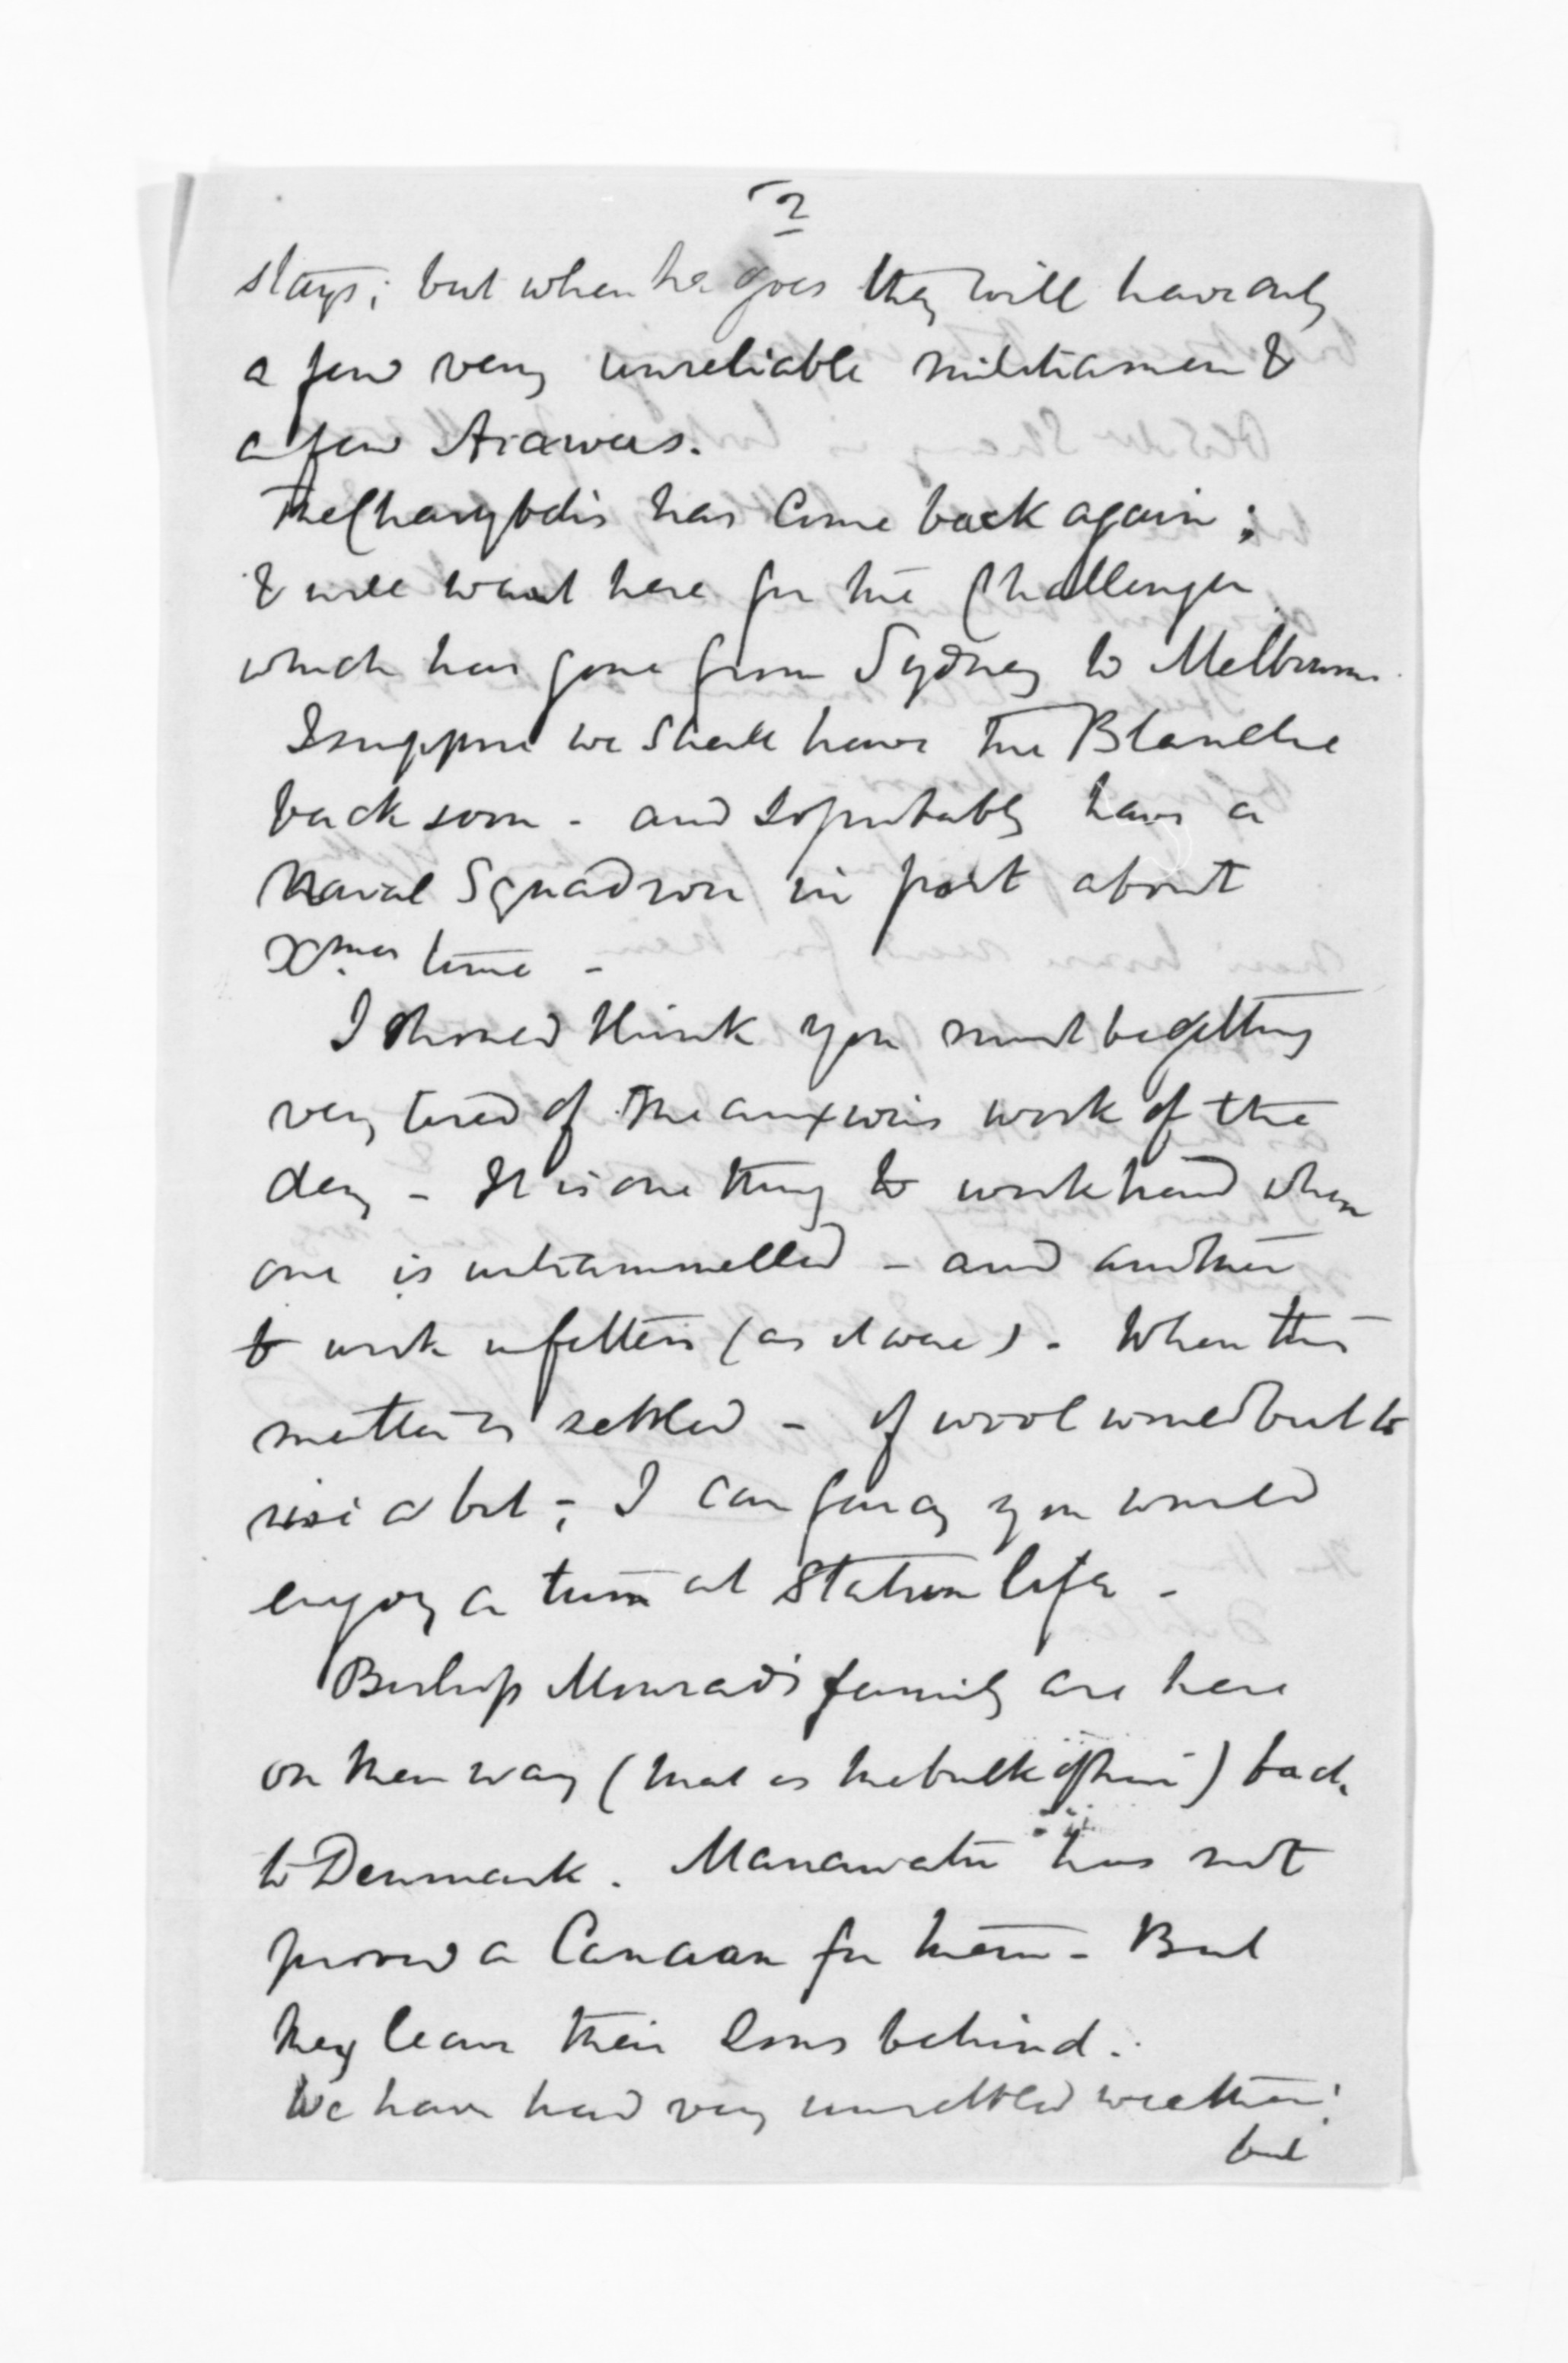 2
stays; but when he goes they will have only
a few very unreliable militiamen &
a few Arawas.
The Charybdis has come back again;
& will wait here for the Challenger
which has gone from Sydney to Melbourne.
I suppose we shall have the Blanche
back soon - and so probably have a
Naval Squadron in port about
Xmas time -
I should think you must be getting
very tired of the anxious work of the
day - It is one thing to work hard when
one is untrammelled - and another
to work in fetters (as it were). When this
matter is settled - if wool would but to
rise a bit; I can fancy you would
enjoy a turn at Station life -
Bishop Monrad's family are here
on their way (that is the bulk of them) back
to Denmark. Manawatu has not
proved a Canaan for them - But
they leave their Sons behind.
We have had very unsettled weather;
but